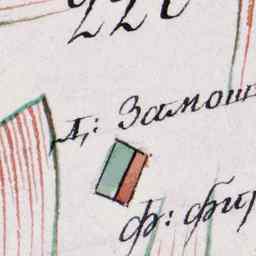 220
д: Замош
ф: фир